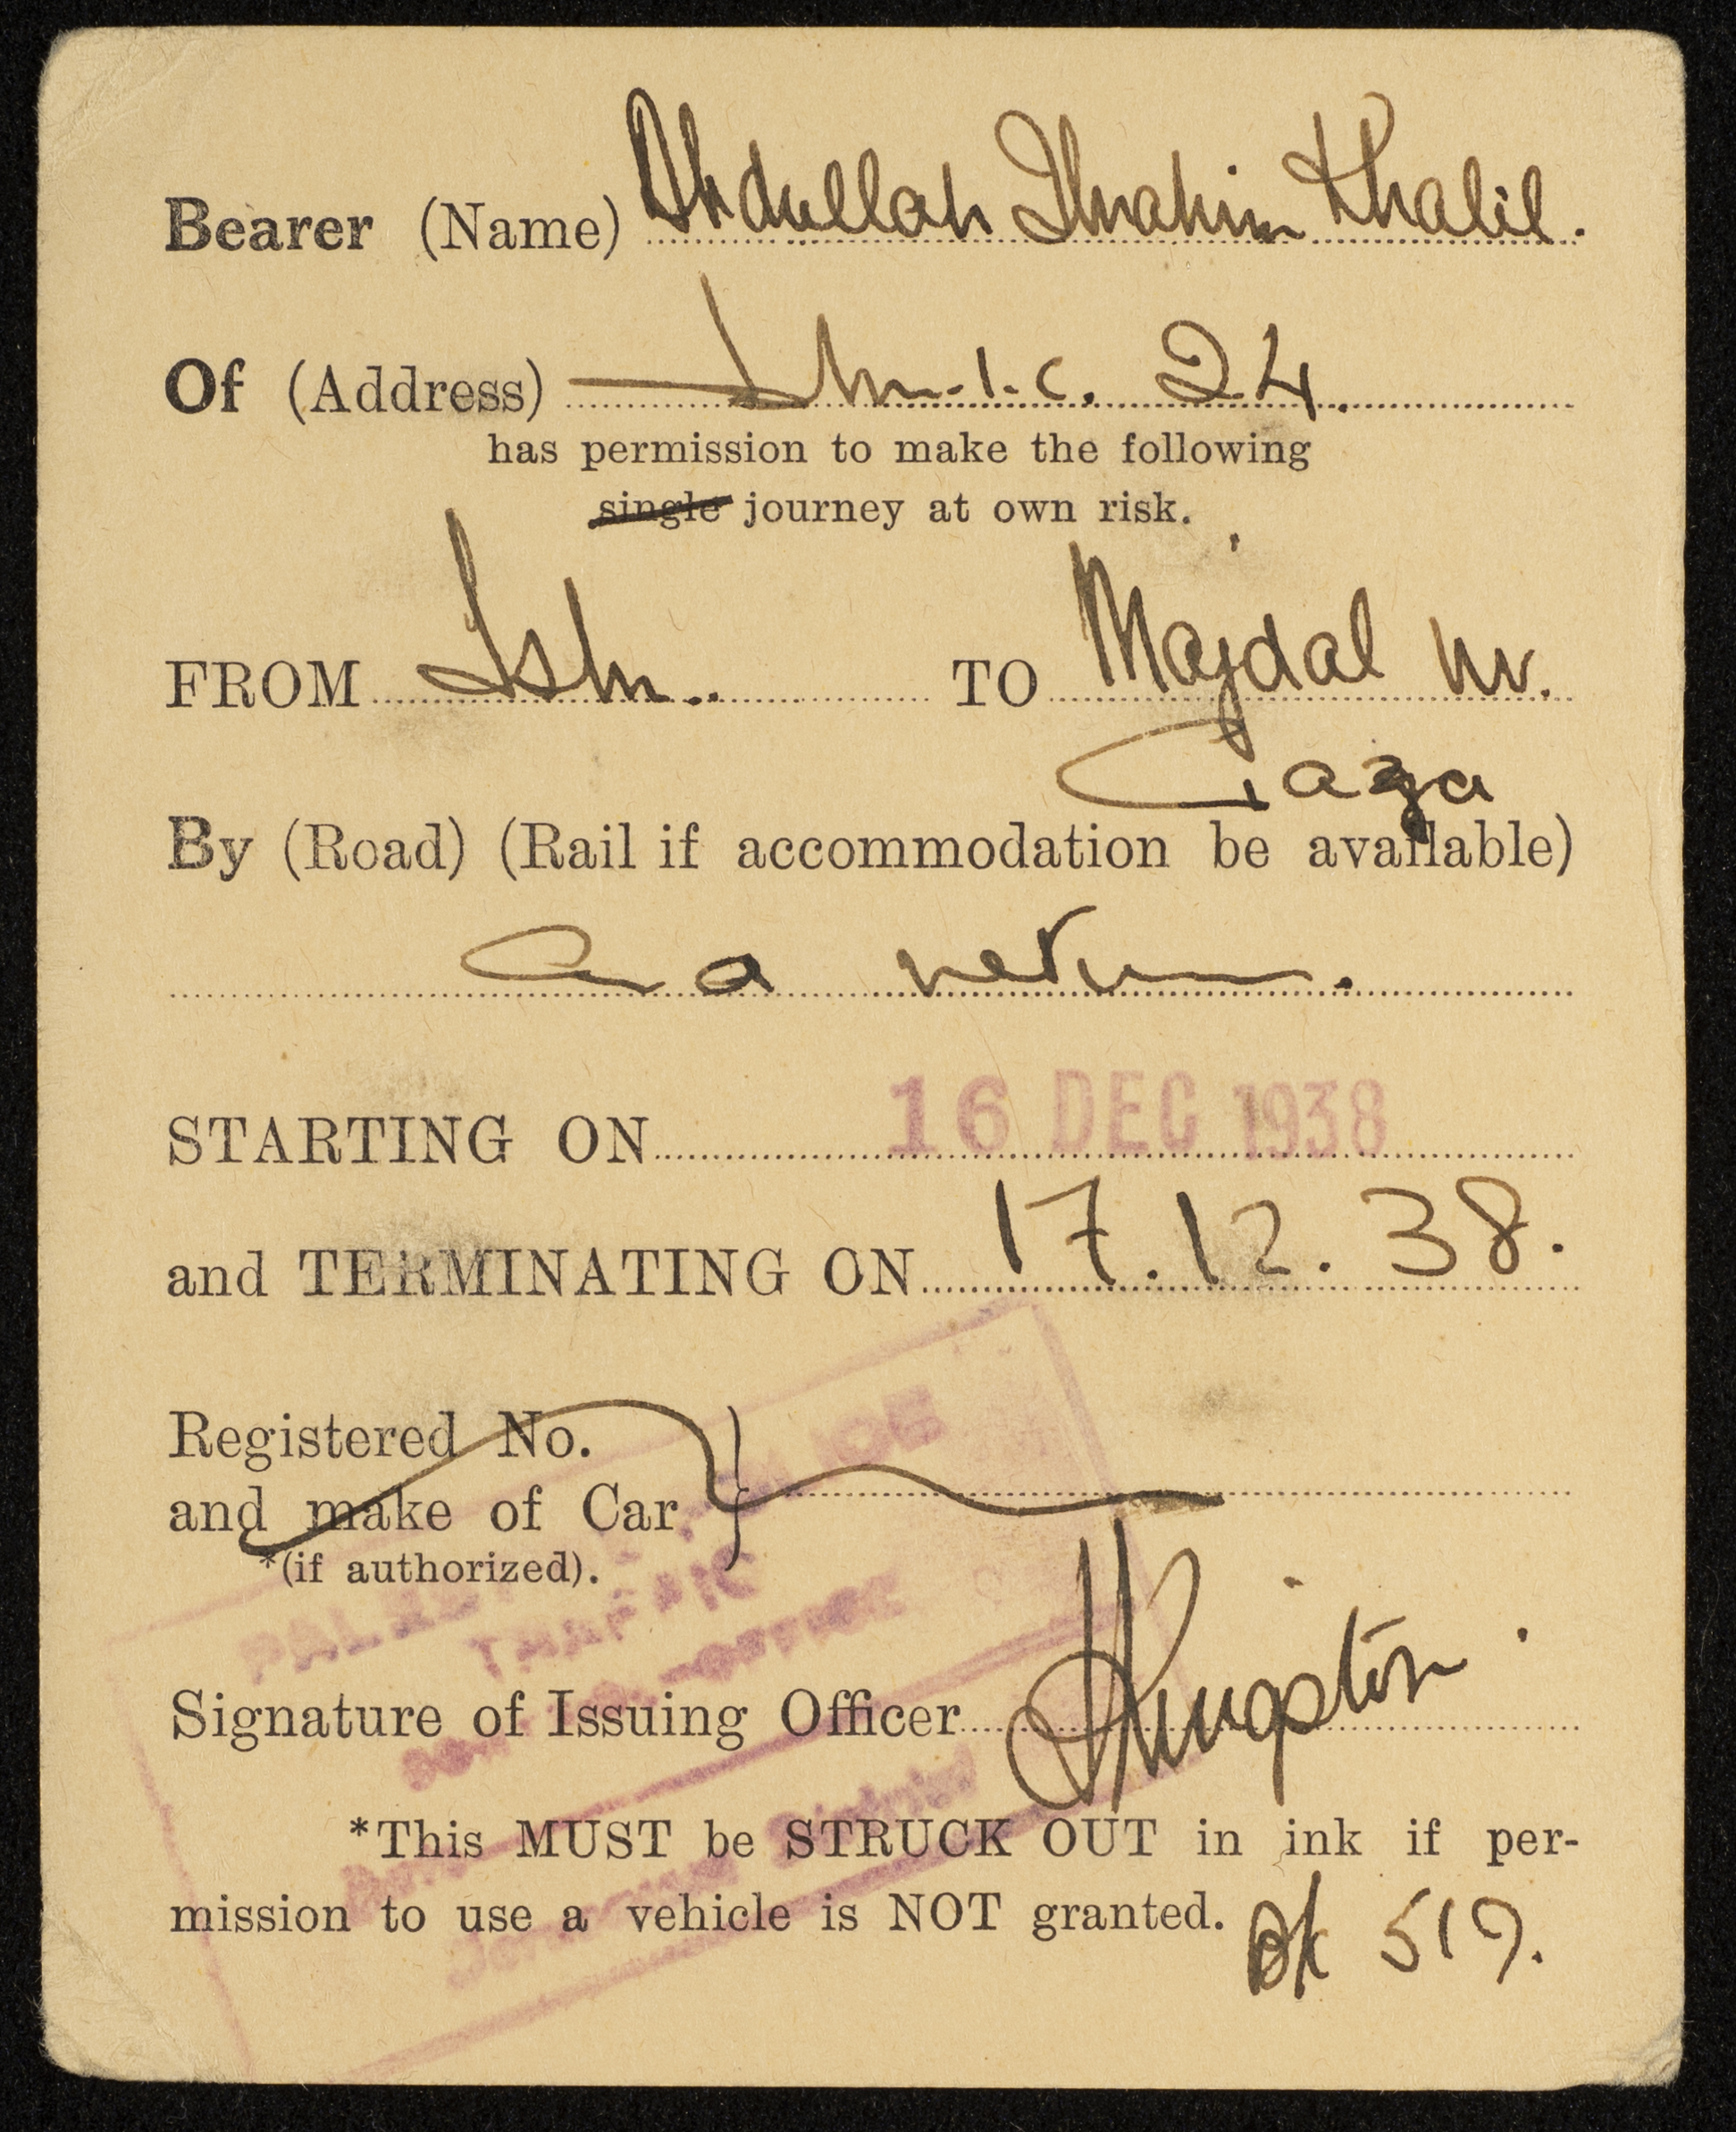 Bearer (Name) Abdullah Ibrahim Khalil.
Of (Address) I.C. 24.
has permission to make the following
single journey at own risk.
FROM TO Majdal nr.
Gaza
By (Road) (Rail if accommodation be available)
and return.
STARTING ON 16 DEC 1938
and TERMINATING ON 17.12.38.
Registered No.
and make of Car }
*(if authorized).
Signature of Issuing Officer Kingston
*This MUST be STRUCK OUT in ink if per-
mission to use a vehicle is NOT granted.
Bk 519.